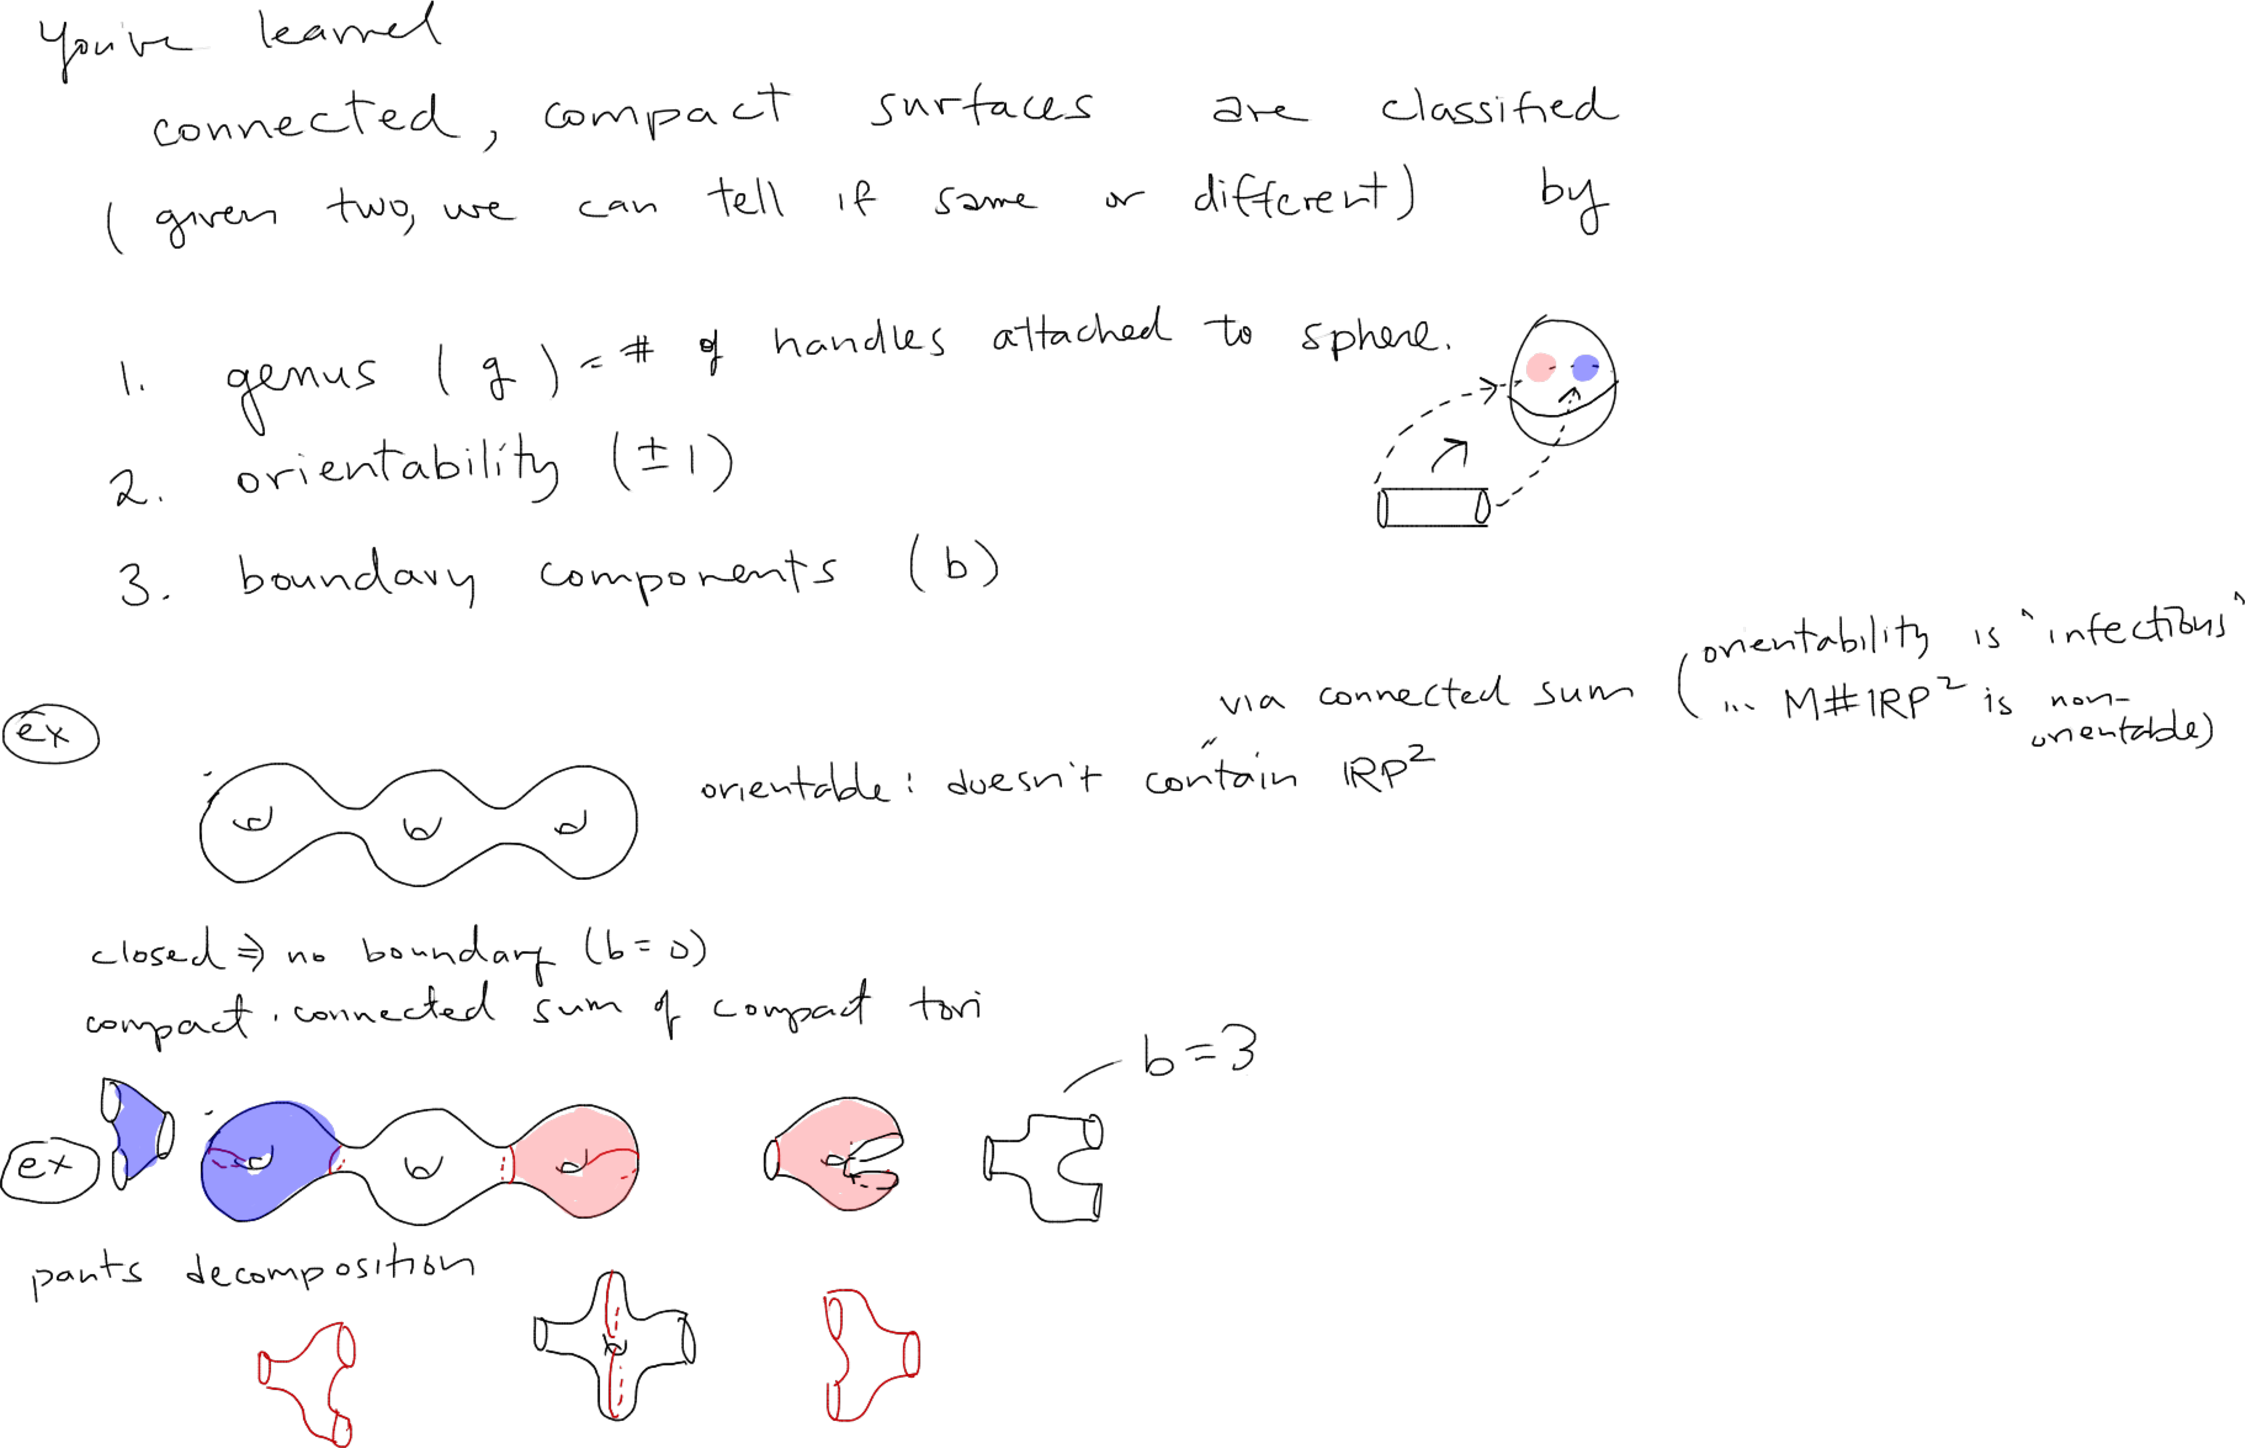 you've learned
connected, compact surfaces are classified
(given two, we can tell if same or different) by
1. genus (g) = # of handles attached to sphere.
2. orientability (±1)
3. boundary components (b)
ex
orientable: doesn't "contain RP²
via connected sum (orientability is "infectious"
... M#RP² is non-
orientable)
closed ⇒ no boundary (b=0)
compact . connected sum of compact tori
b=3
ex
pants decomposition